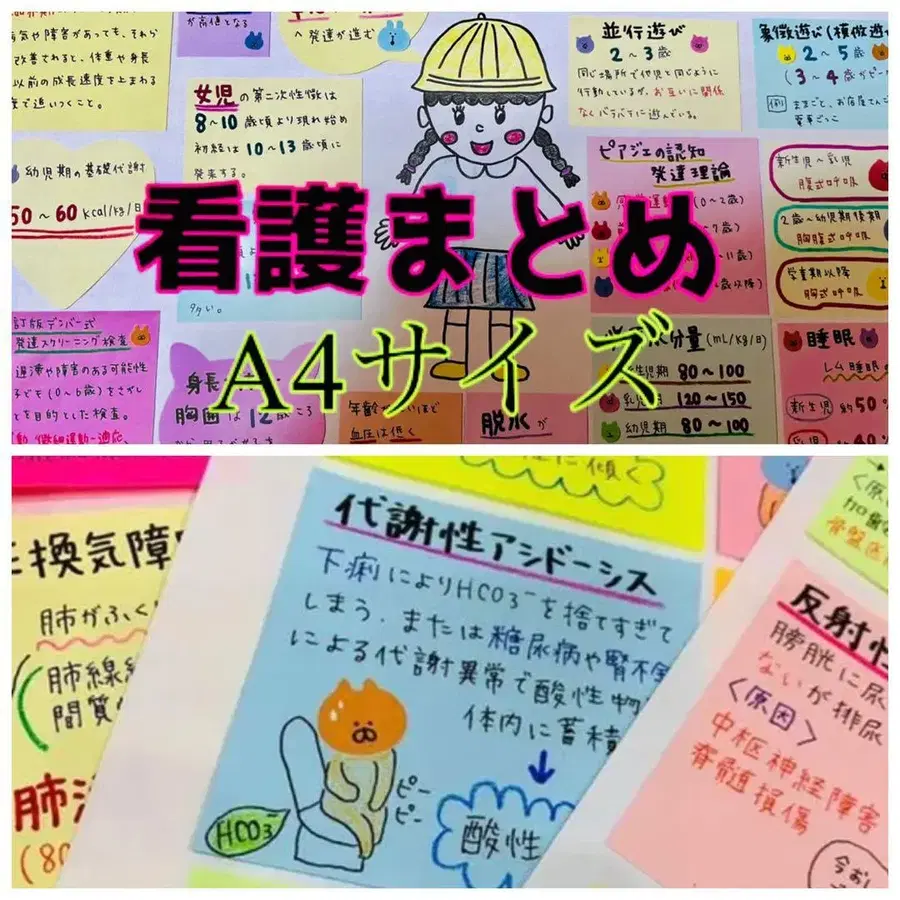 が高値となる
気や障害があっても、それら
改善されると、体重や身長
以前の成長速度を上まわる
度で追いつくこと。
へ発達が進む
女児の第二次性徴は
8〜10歳頃より現れ始め
初経は10〜13歳頃に
発来する。
幼児期の基礎代謝
50〜60kcal/kg/日
多い。
並行遊び
2〜3歳
同じ場所で他児と同じように
行動しているが、お互いに関係
なくバラバラに遊んでいる。
象徴遊び(模倣遊び
2〜5歳
(3〜4歳がピー
例 ままごと、お店屋さんご
電車ごっこ
ピアジェの認知
発達理論
(0〜2歳)
7歳)
11歳)
歳以降)
新生児〜乳児
腹式呼吸
2歳〜幼児期後期
胸腹式呼吸
学童期以降
胸式呼吸
看護まとめ
A4サイズ
訂版デンバー式
発達スクリーニング検査
遅滞や障害のある可能性
子ども(0〜6歳)をさがし
とを目的とした検査。
身長
胸囲は12歳ころ
年齢が
いほど
血圧は低く
脱水が
水分量(mL/kg/日)
新生児期 80〜100
乳児期 120〜150
幼児期 80〜100
睡眠
レム睡眠の
新生児 約50%
乳児 約40%
に傾く
換気障
肺がふく
肺線維
間質
肺活
(80
代謝性アシドーシス
下痢によりHCO3⁻を捨てすぎて
しまう.または糖尿病や腎不全
による代謝異常で酸性物
体内に蓄積
ピー
ピー
HCO3⁻
酸性
〈原
加齢
骨盤底
反射性
膀胱に尿
ないが排尿
〈原因〉
中枢神経障害
脊髄損傷
今おし